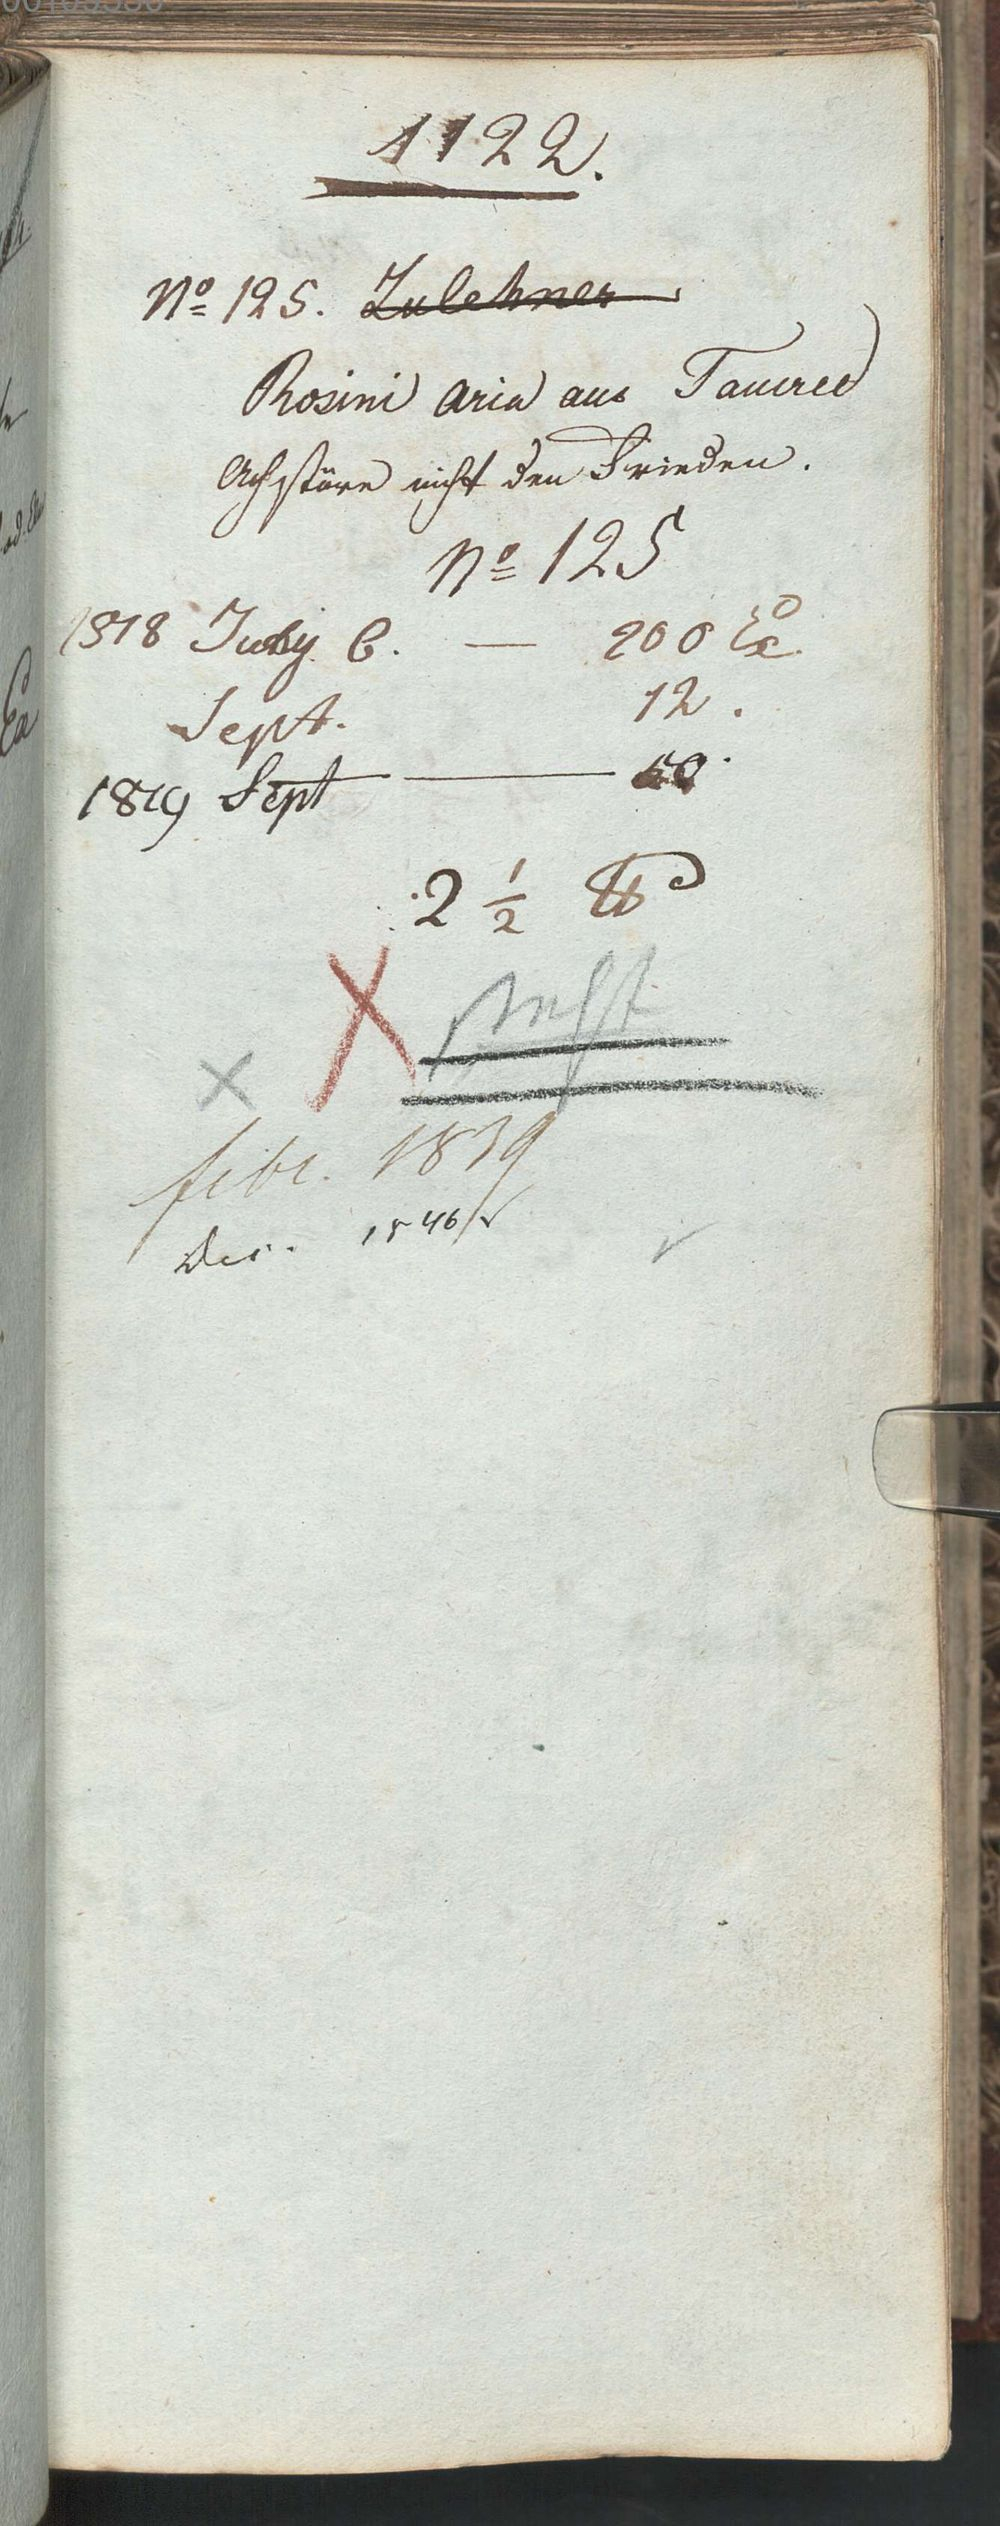 1122.
No 125. Zulehner
Rosini Aria aus Tancred
Ach störe nicht den Frieden.
No 125
1818 July C. — 200 Ex
Sept. 12.
1819 Sept — 50.
2 1/2 ℔
X
x
febr. 1839
Dec. 1846